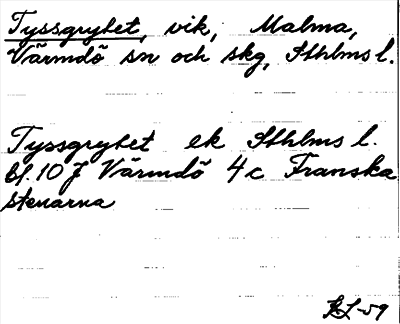 Tyssgrytet, vik, Malma,
Värmdö sn och skg, Sthlms l.
Tyssgrytet ek Sthlms l.
bl. 10 J Värmdö 4c Franska
stenarna
-59